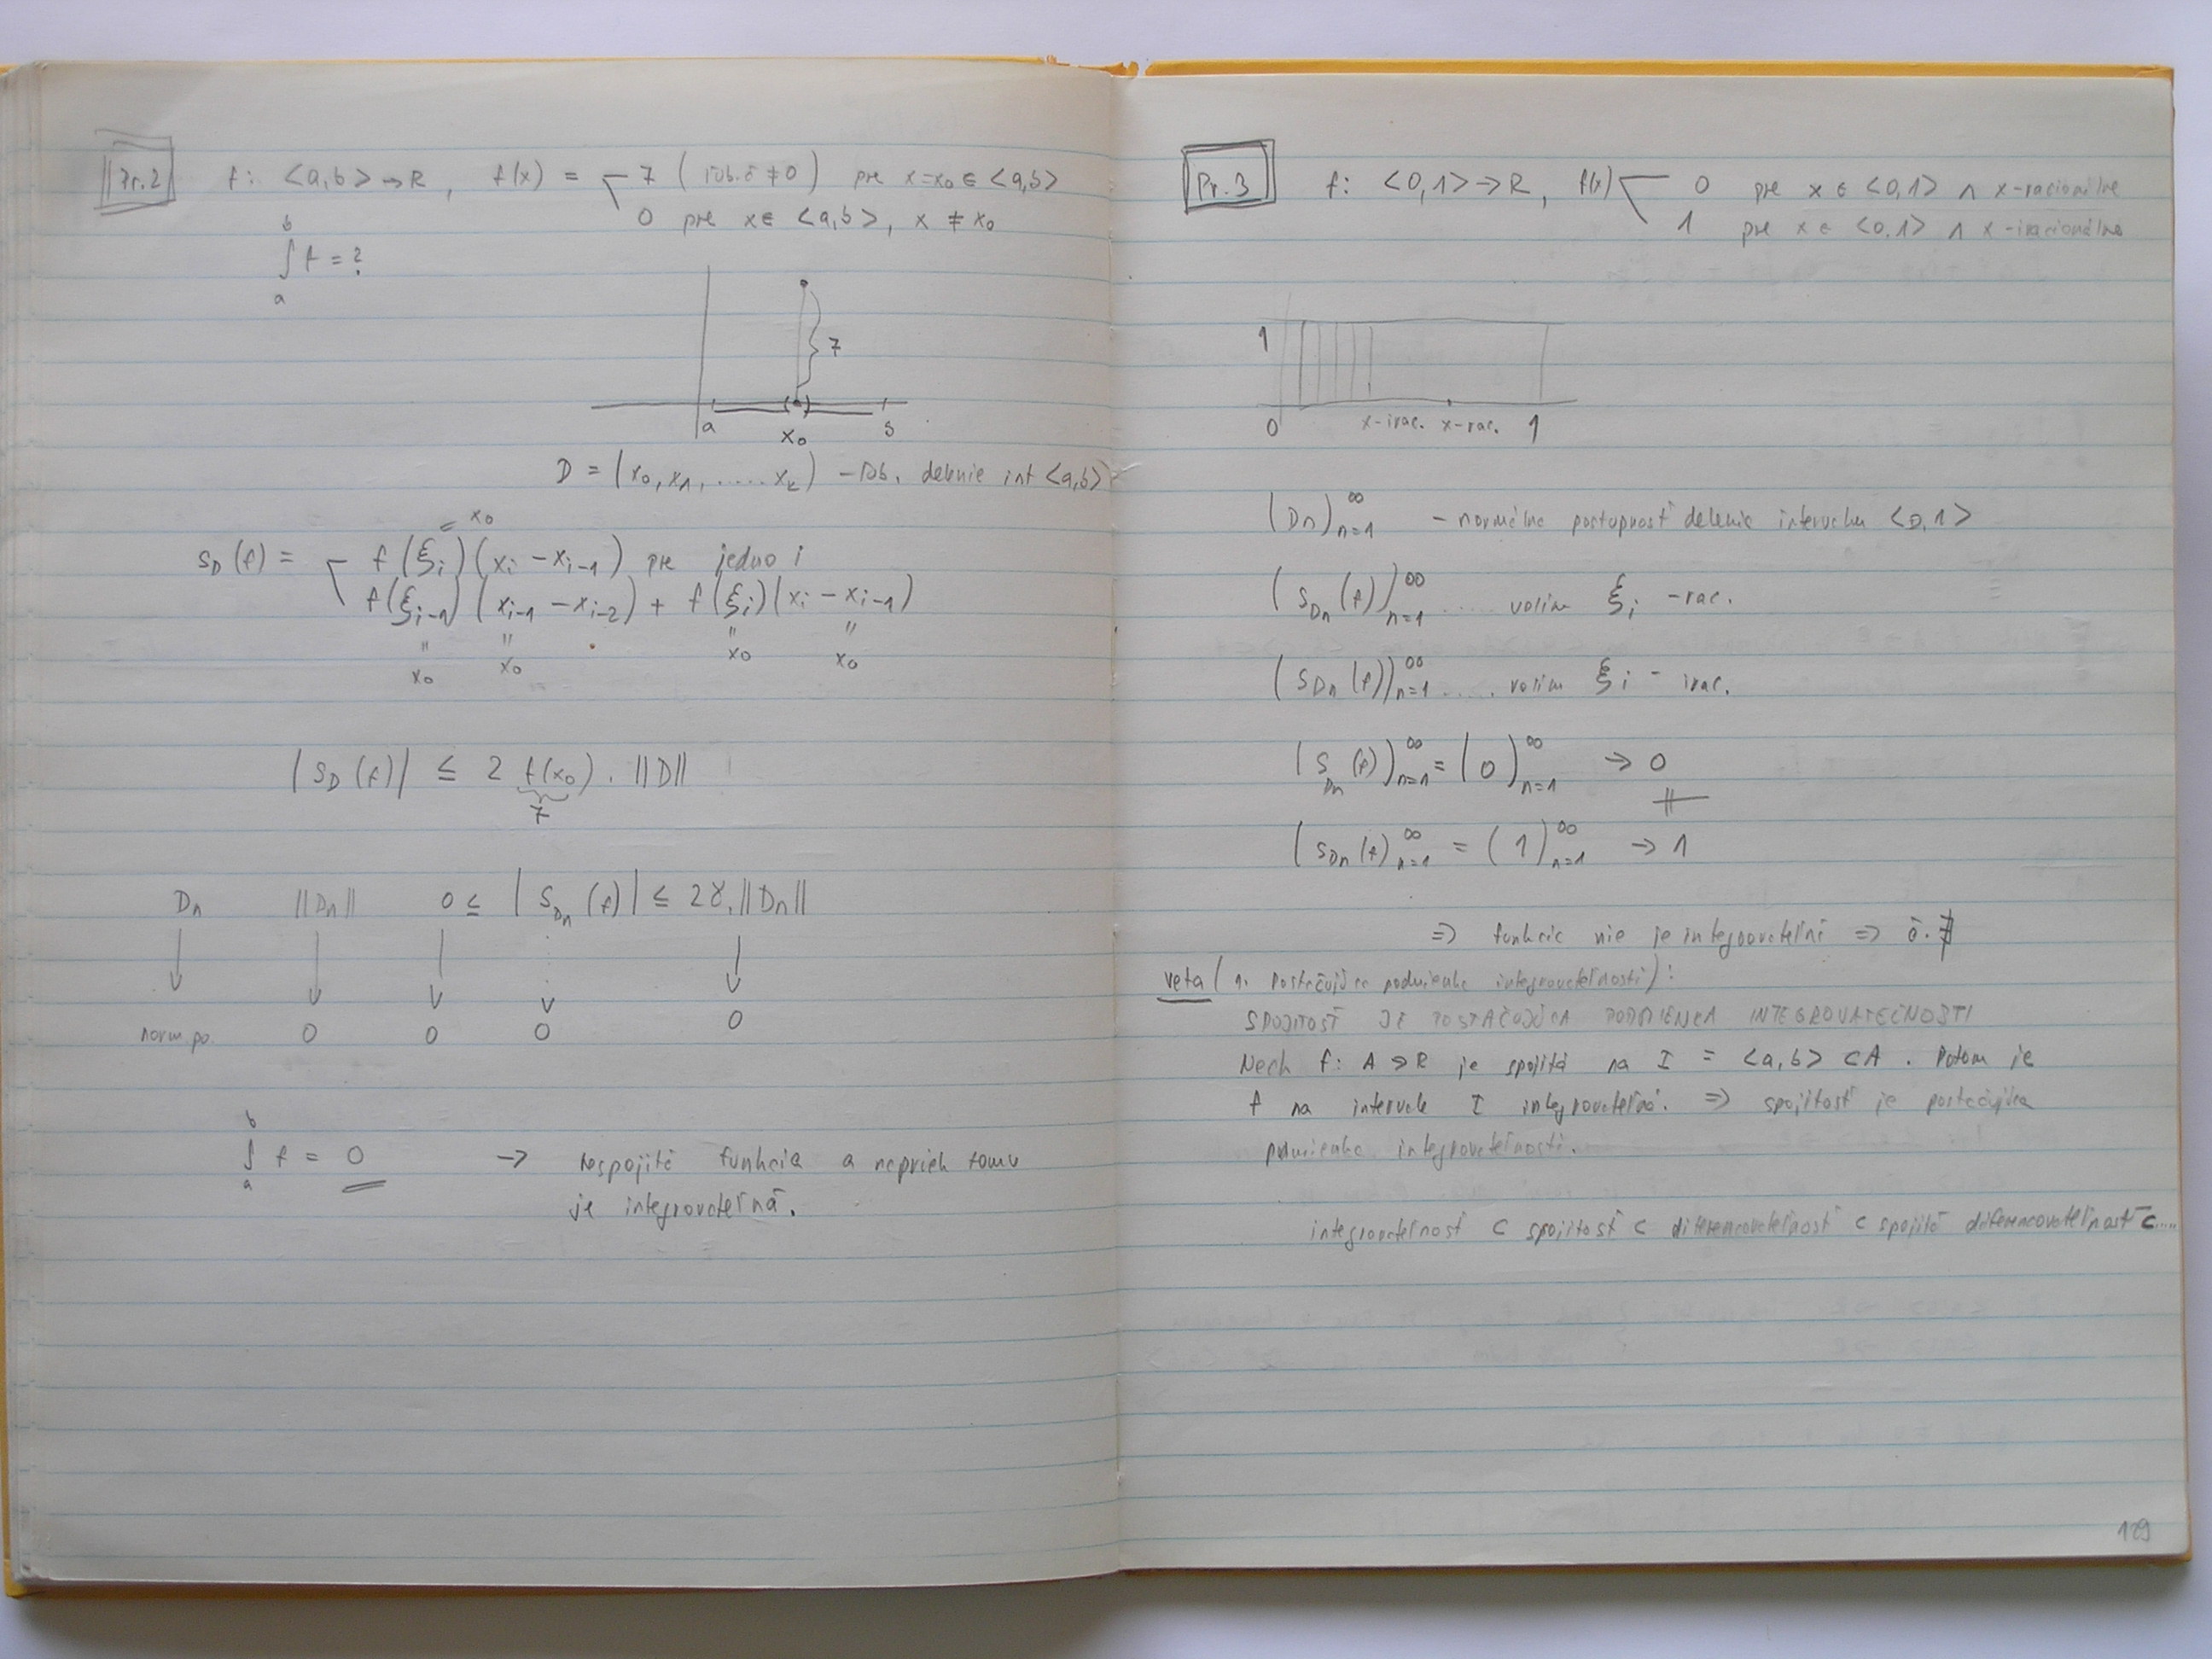 Pr.2 f: <a,b> → R, f(x) = 7 (ľub. č ≠ 0) pre x = x₀ ∈ <a,b>
0 pre x ∈ <a,b>, x ≠ x₀
b
∫ f = ?
a
7
a x₀ b
D = (x₀, x₁, ..... xₖ) - ľub. delenie int <a,b>
= x₀
S_D (f) = f(ξᵢ)(xᵢ - xᵢ₋₁) pre jedno i
f(ξᵢ₋₁)(xᵢ₋₁ - xᵢ₋₂) + f(ξᵢ)(xᵢ - xᵢ₋₁)
" " " "
x₀ x₀ x₀ x₀
|S_D (f)| ≤ 2 f(x₀) . ||D||
7
Dₙ ||Dₙ|| 0 ≤ |S_Dₙ (f)| ≤ 2γ.||Dₙ||
↓ ↓ ↓ ↓ ↓
norm po. 0 0 0 0
b
∫ f = 0 → nespojitá funkcia a napriek tomu
a
je integrovateľná.
Pr. 3 f: <0,1> → R, f(x) 0 pre x ∈ <0,1> ∧ x-racionálne
1 pre x ∈ <0,1> ∧ x-iracionálne
1
0 x-irac. x-rac. 1
(Dn)ₙ₌₁^∞ - normálna postupnosť delenia intervalu <0,1>
(S_Dn (f))ₙ₌₁^∞ ..... volím ξᵢ - rac.
(S_Dn (f))ₙ₌₁^∞ ..... volím ξᵢ - irac.
(S_Dn (f))ₙ₌₁^∞ = (0)ₙ₌₁^∞ → 0
≠
(S_Dn (f)ₙ₌₁^∞ = (1)ₙ₌₁^∞ → 1
⇒ funkcia nie je integrovateľná ⇒ ∄
veta (1. Postačujúca podmienka integrovateľnosti):
SPOJITOSŤ JE POSTAČUJÚCA PODMIENKA INTEGROVATEĽNOSTI
Nech f: A → R je spojitá na I = <a,b> ⊂ A. Potom je
f na intervale I integrovateľná. ⇒ spojitosť je postačujúca
podmienka integrovateľnosti.
integrovateľnosť ⊂ spojitosť ⊂ diferencovateľnosť ⊂ spojitá diferencovateľnosť ⊂ .....
129